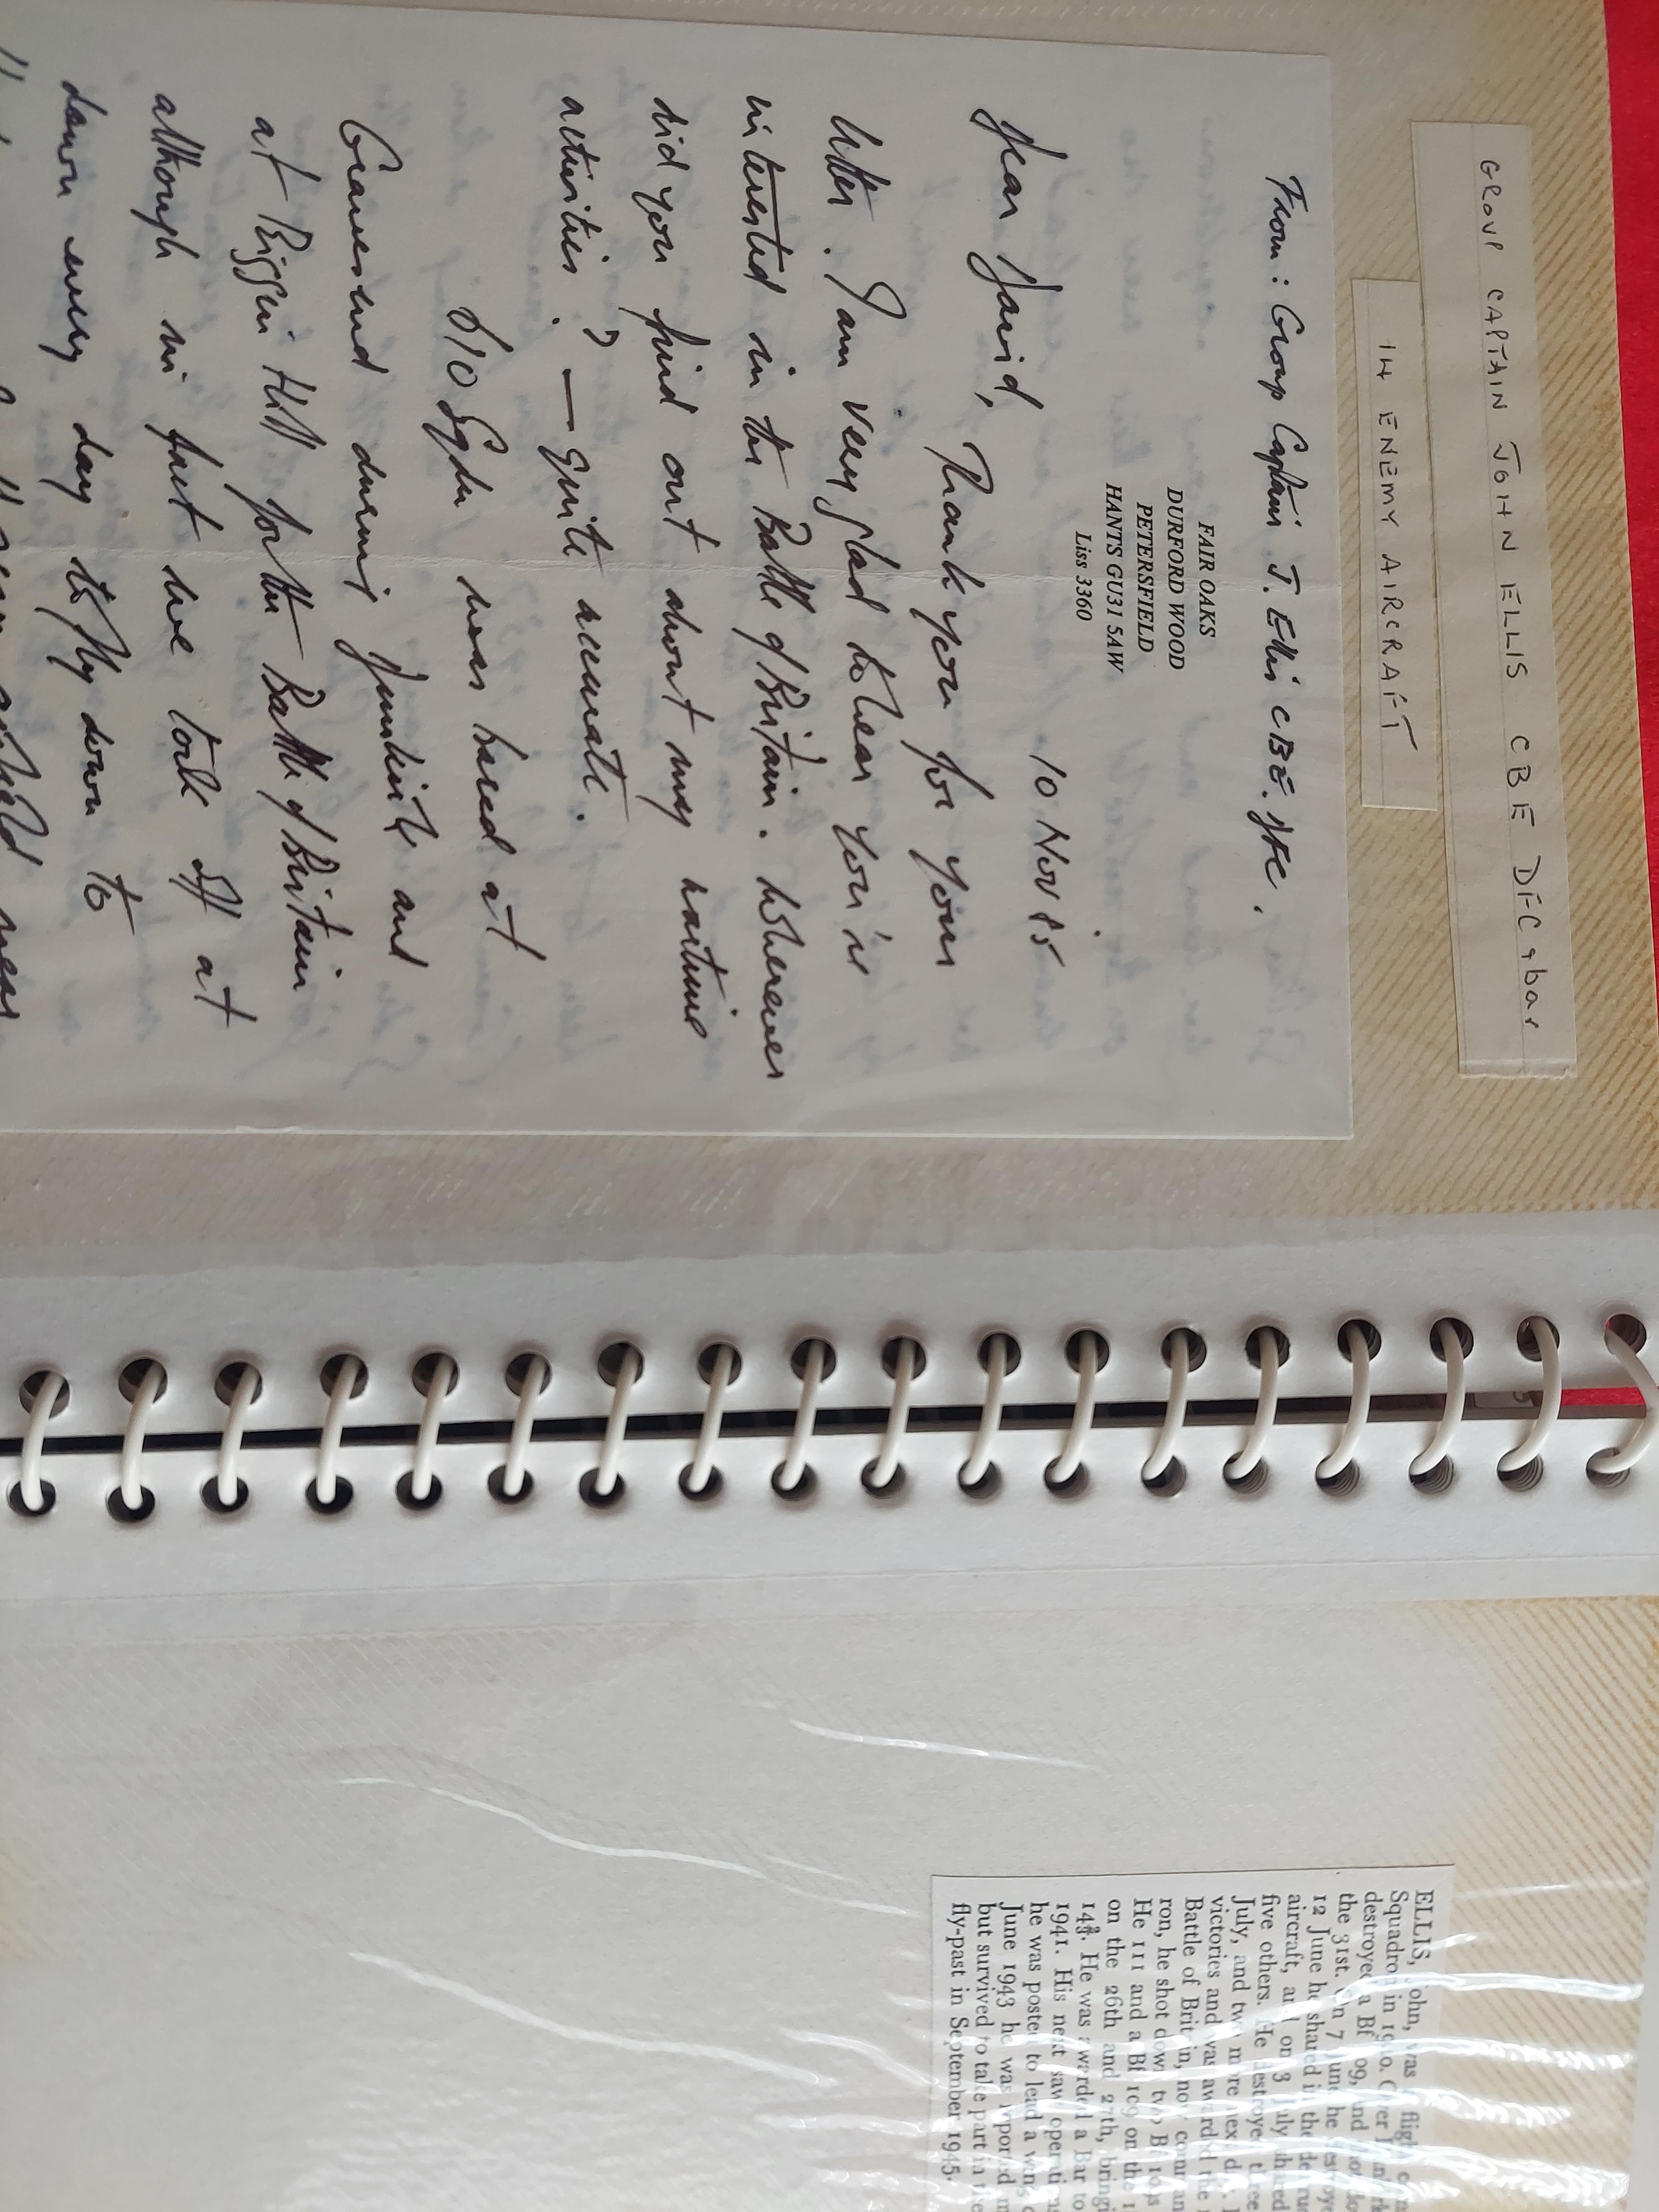 GROUP CAPTAIN JOHN ELLIS CBE DFC & bar
14 ENEMY AIRCRAFT
From: Group Captain J. Ellis CBE. DFC.
FAIR OAKS
DURFORD WOOD
PETERSFIELD
HANTS GU31 5AW
Liss 3360
10 Nov 85
Dear David,
Thank you for your
letter. I am very glad to hear you're
interested in the Battle of Britain. Wherever
did you find out about my wartime
activities? — quite accurate.
610 Sqdn was based at
Gravesend during Dunkirk and
at Biggin Hill for the Battle of Britain
although in fact we took off at
dawn every day to fly down to
ELLIS, John, was flight
Squadron in 1940. Over
destroyed a Bf 109, and
the 31st. On 7 June he destroy
12 June he shared in the destruc
aircraft, and on 3 July shared
five others. He destroyed three
July, and two more next d
victories and was awarded the
Battle of Britain, now comman
ron, he shot down two Bf 109s
He 111 and a Bf 109 on the
on the 26th and 27th, bringi
14½. He was awarded a Bar to
1941. His next saw operations
he was posted to lead a wing
June 1943 he was reported m
but survived to take part in the
fly-past in September 1945.